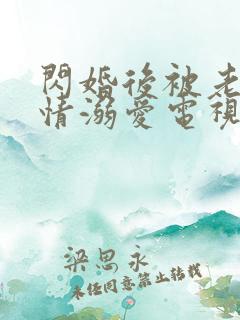 閃婚後被老
情溺愛電視
梁思永
未经同意禁止转载